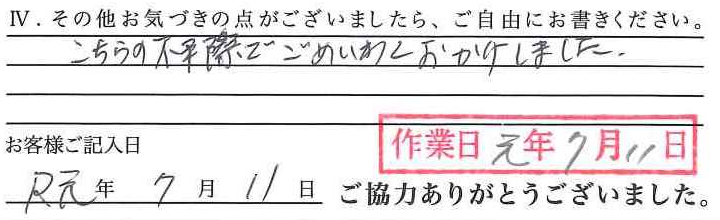 Ⅳ．その他お気づきの点がございましたら、ご自由にお書きください。
こちらの不手際でごめいわくおかけしました.
お客様ご記入日
作業日 元年7月11日
R元年 7月 11日 ご協力ありがとうございました。